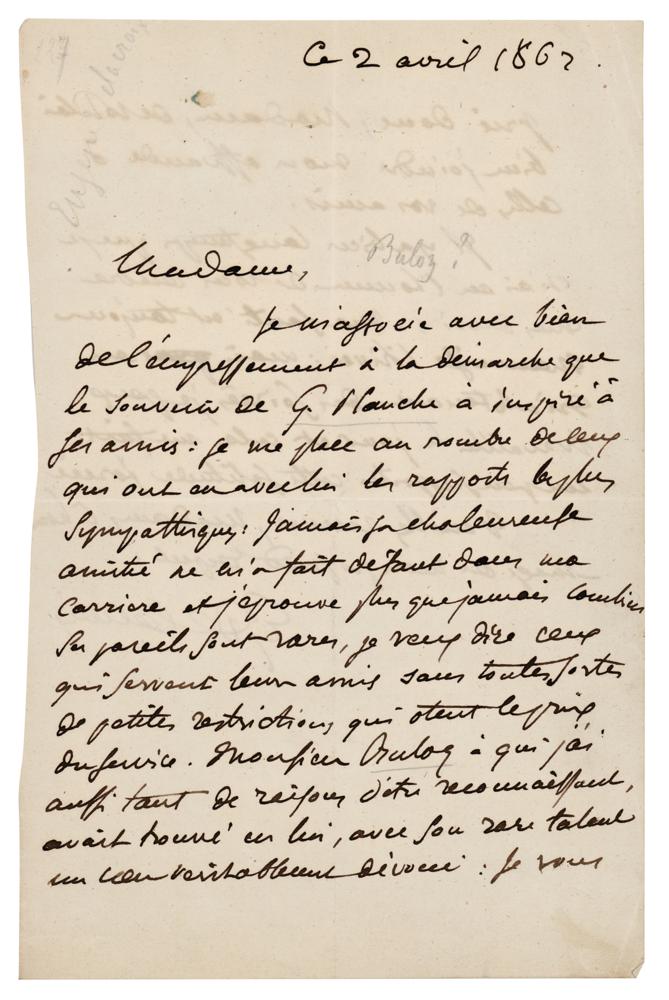 Ce 2 avril 1862.
Eugène Delacroix
Buloz?
Madame,
Je m'associe avec bien
de l'empressement à la démarche que
le souvenir de G. Planche a inspiré à
ses amis : je me place au nombre de ceux
qui ont eu avec lui les rapports les plus
sympathiques : jamais sa chaleureuse
amitié ne m'a fait défaut dans ma
carrière et j'éprouve plus que jamais combien
ses pareils sont rares, je veux dire ceux
qui servent leurs amis sans toutes sortes
de petites restrictions qui otent le prix
du service. Monsieur Buloz à qui j'ai
aussi tant de raisons d'être reconnaissant,
avait trouvé en lui, avec son rare talent
un cœur véritablement dévoué : Je vous